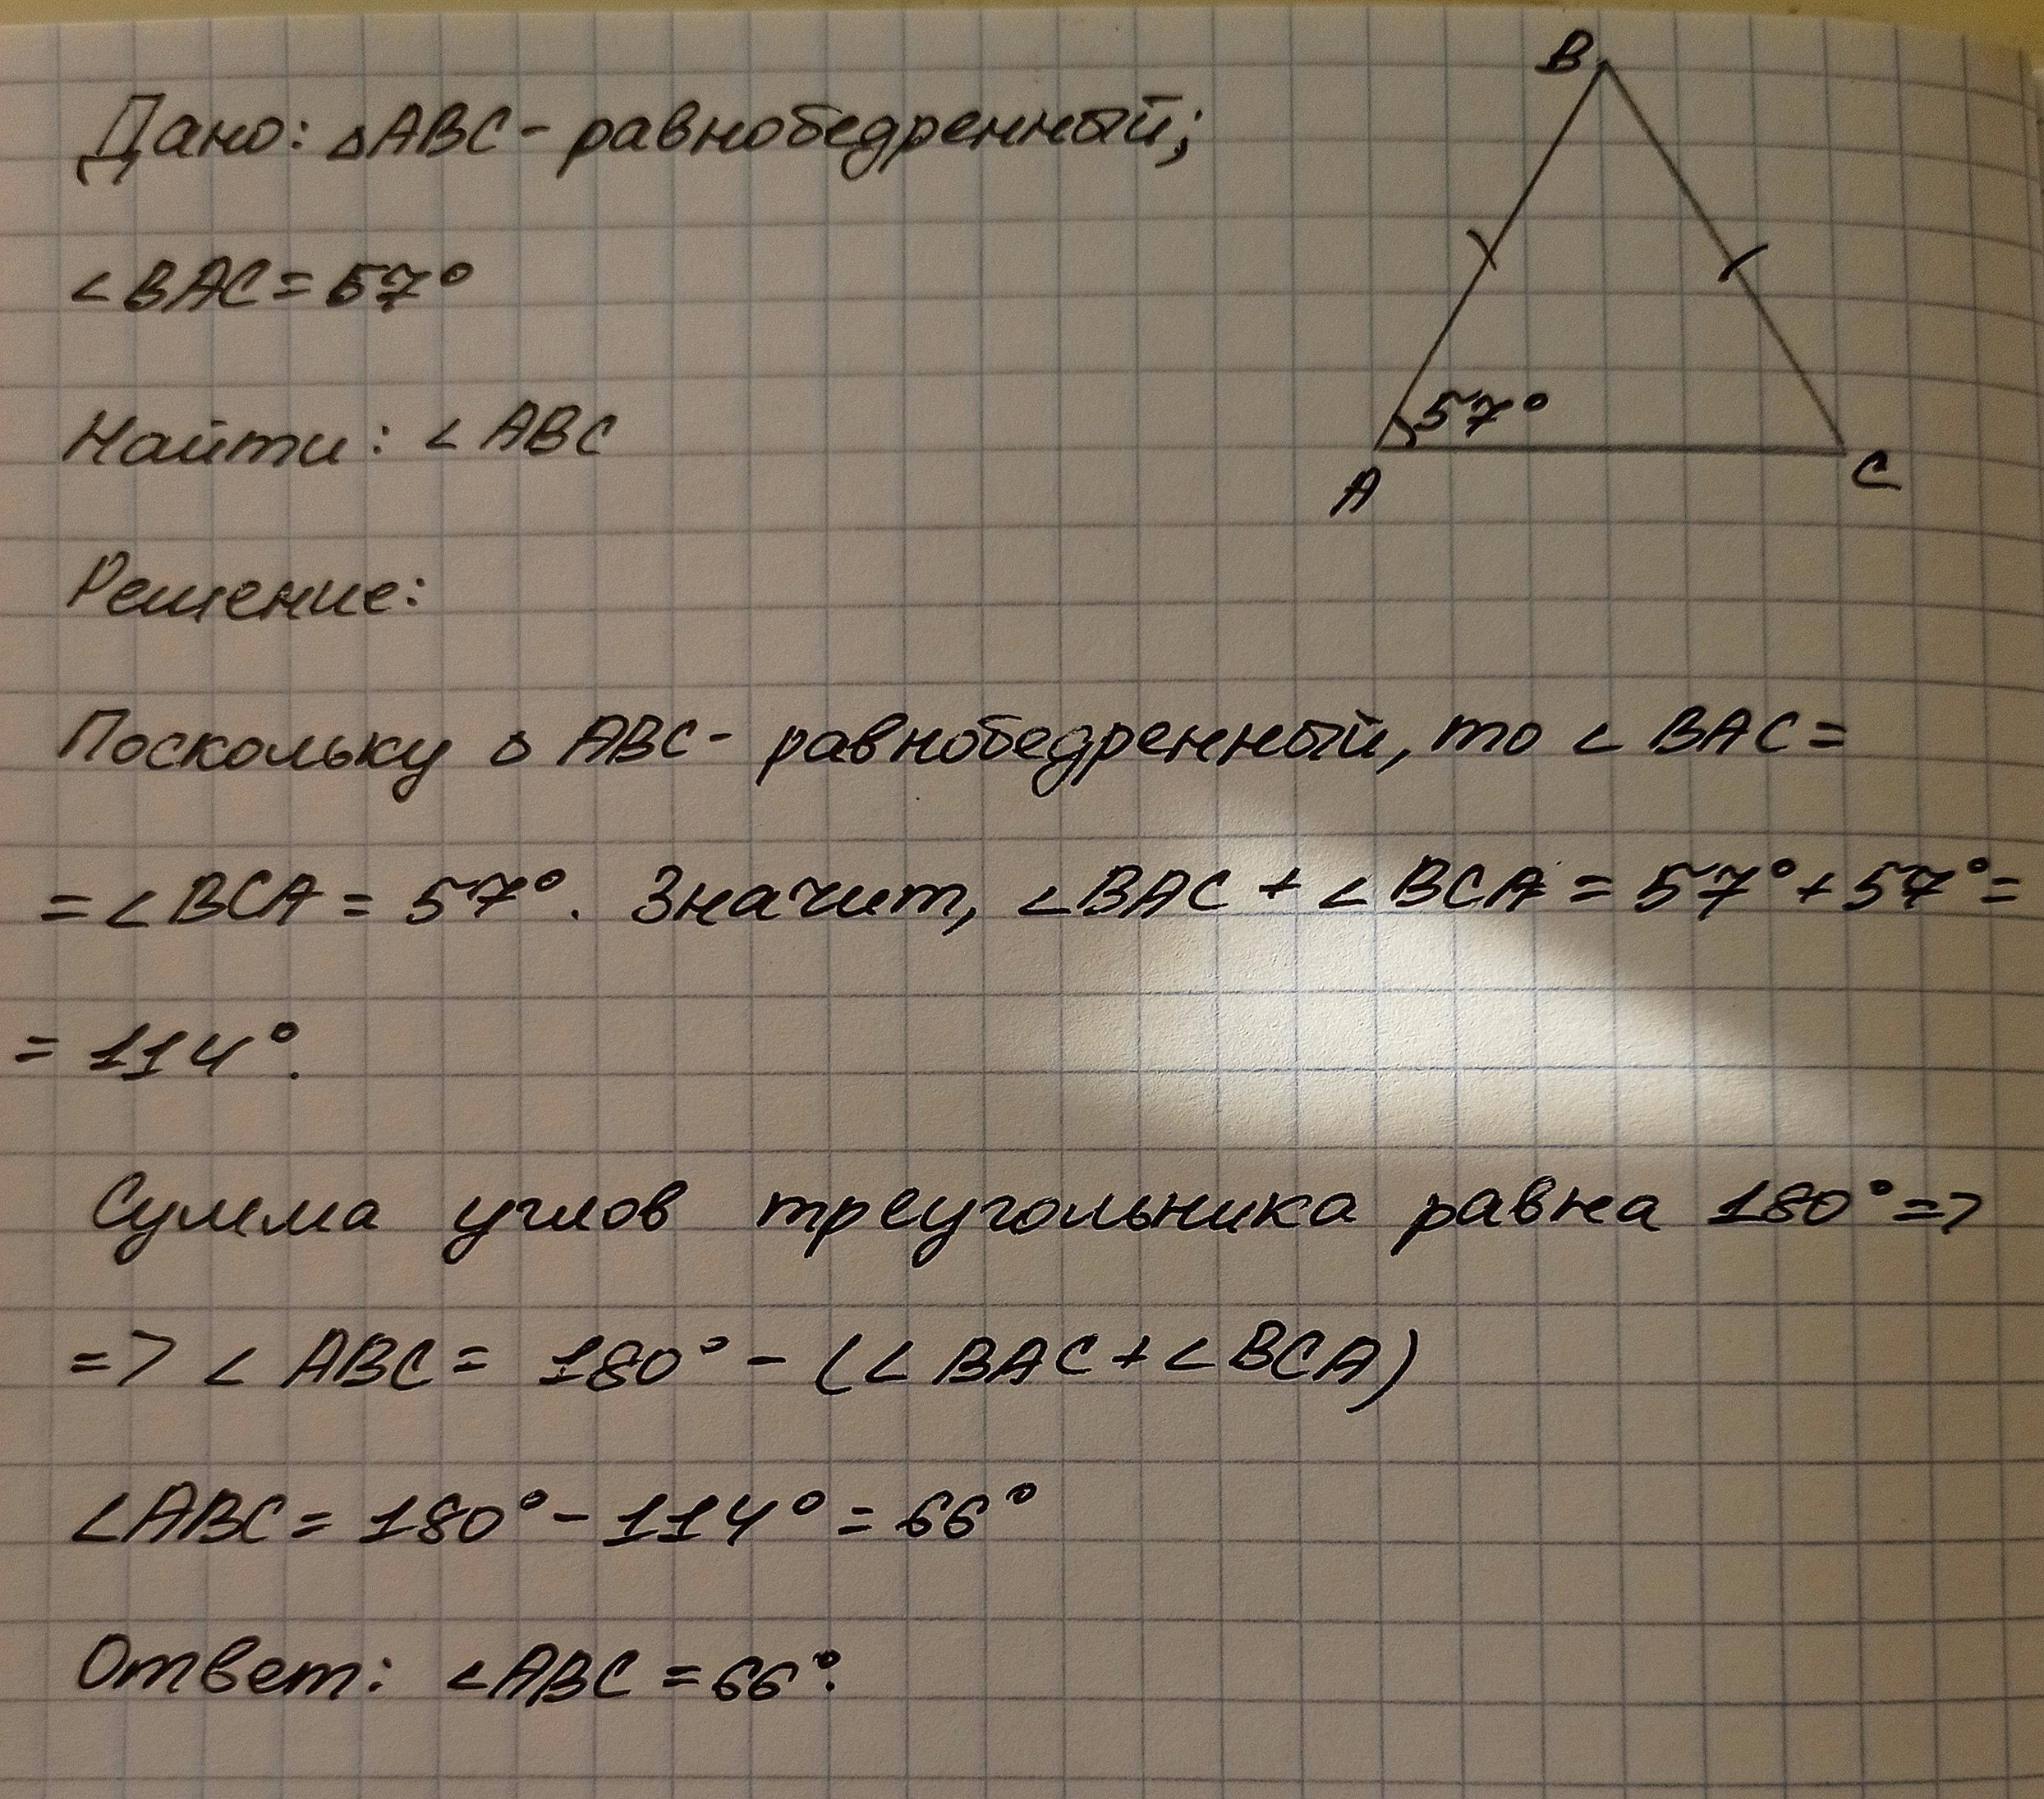 B
Дано: △ABC - равнобедренный;
∠BAC = 57°
57°
Найти: ∠ABC
A
C
Решение:
Поскольку △ ABC - равнобедренный, то ∠ BAC =
= ∠ BCA = 57°. Значит, ∠BAC + ∠BCA = 57° + 57° =
= 114°.
Сумма углов треугольника равна 180° =>
=> ∠ ABC = 180° - (∠ BAC + ∠BCA)
∠ABC = 180° - 114° = 66°
Ответ: ∠ABC = 66°.